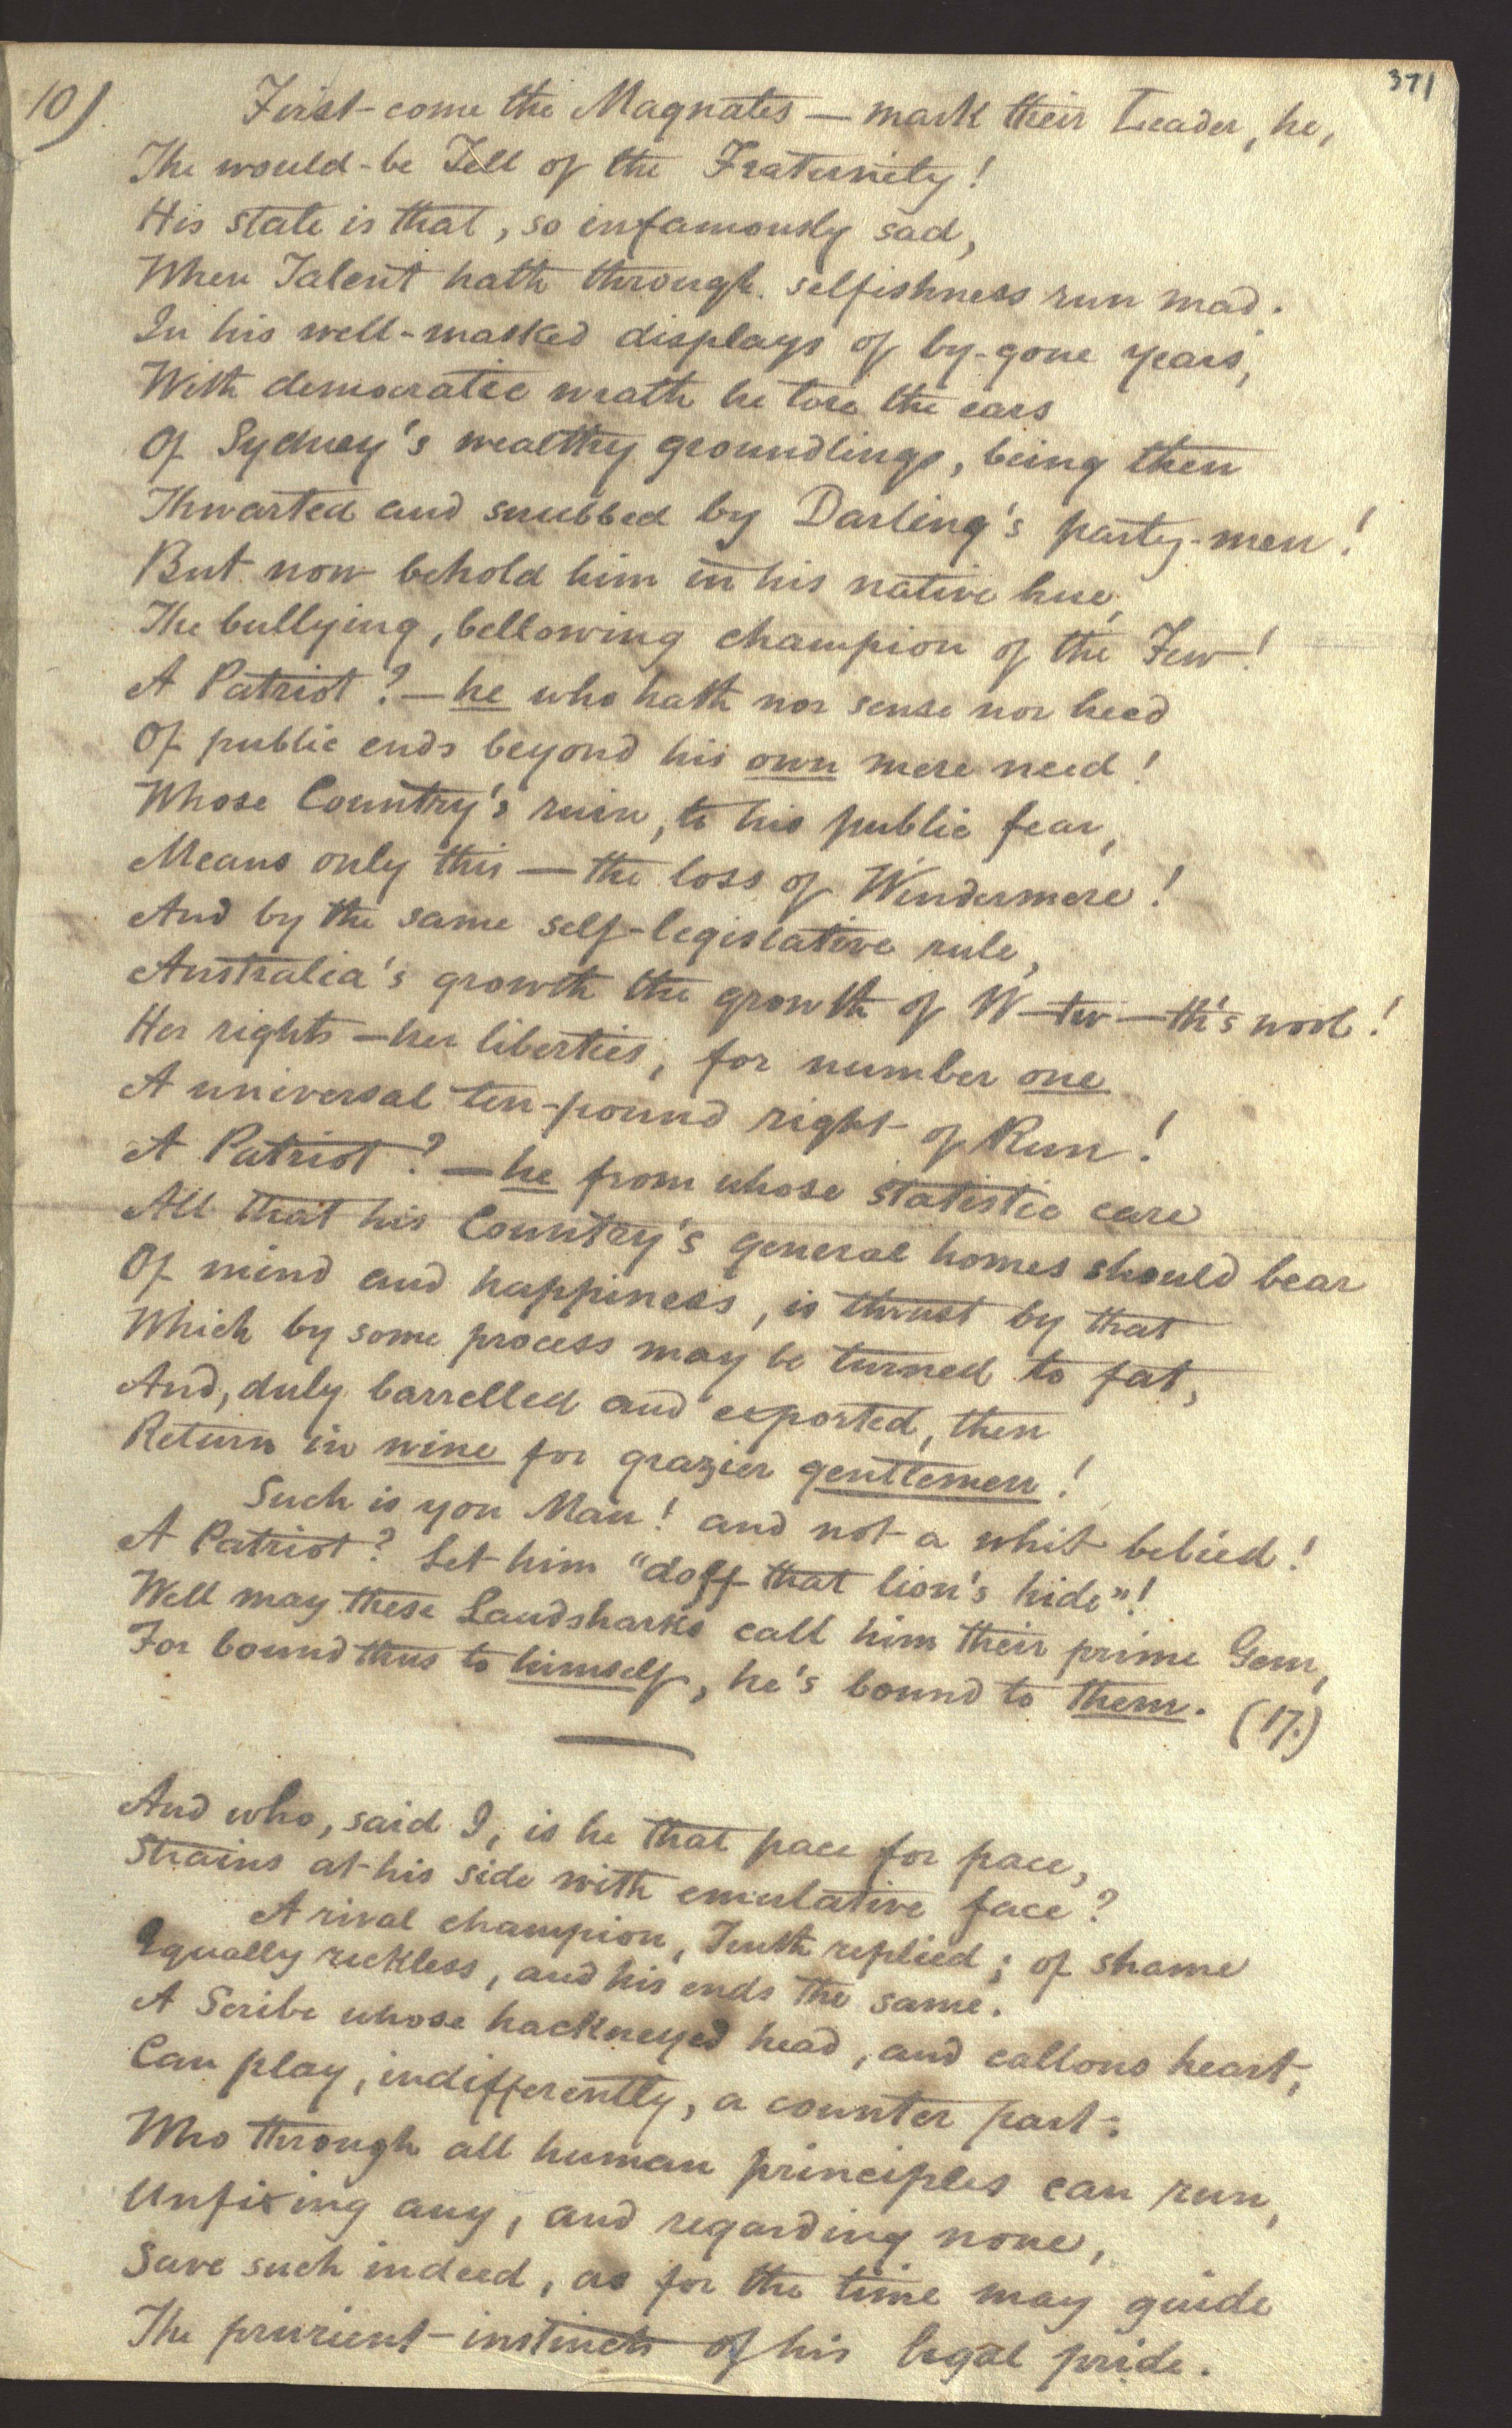 371
10)
First come the Magnates — mark their Leader, he,
The would-be Tell of the Fraternity!
His state is that, so infamously sad,
When Talent hath through selfishness run mad.
In his well-masked displays of by-gone years,
With democratic wrath he tore the ears
Of Sydney's wealthy groundlings, being then
Thwarted and snubbed by Darling's party-men!
But now behold him in his native hue,
The bullying, bellowing champion of the Few!
A Patriot? — he who hath nor sense nor heed
Of public ends beyond his own mere need!
Whose Country's ruin, to his public fear,
Means only this — the loss of Windermere!
And by the same self-legislative rule,
Australia's growth the growth of W—tw—th's wool!
Her rights — her liberties, for number one
A universal ten-pound right of Run!
A Patriot? — he from whose statistic care
All that his Country's general homes should bear
Of mind and happiness, is thrust by that
Which by some process may be turned to fat,
And, duly barrelled and exported, then
Return in wine for grazier gentlemen!
Such is yon Man! and not a whit belied!
A Patriot? Let him "doff that lion's hide"!
Well may these Landsharks call him their prime Gem,
For bound thus to himself, he's bound to them. (17.)
And who, said I, is he that pace for pace,
Strains at his side with emulative face?
A rival champion, Truth replied; of shame
Equally reckless, and his ends the same.
A Scribe whose hackneyed head, and callous heart,
Can play, indifferently, a counter part:
Who through all human principles can run,
Unfixing any, and regarding none,
Save such indeed, as for the time may guide
The prurient instincts of his legal pride.